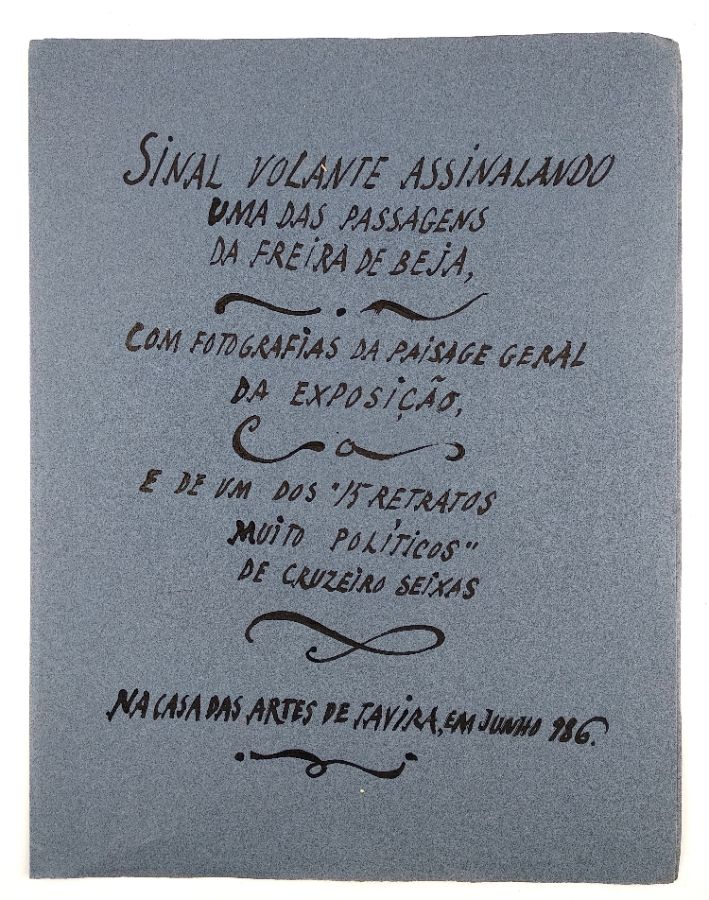 SINAL VOLANTE ASSINALANDO
UMA DAS PASSAGENS
DA FREIRA DE BEJA,
COM FOTOGRAFIAS DA PAISAGE GERAL
DA EXPOSIÇÃO,
E DE UM DOS "15 RETRATOS
MUITO POLÍTICOS"
DE CRUZEIRO SEIXAS
NA CASA DAS ARTES DE TAVIRA, EM JUNHO 986.